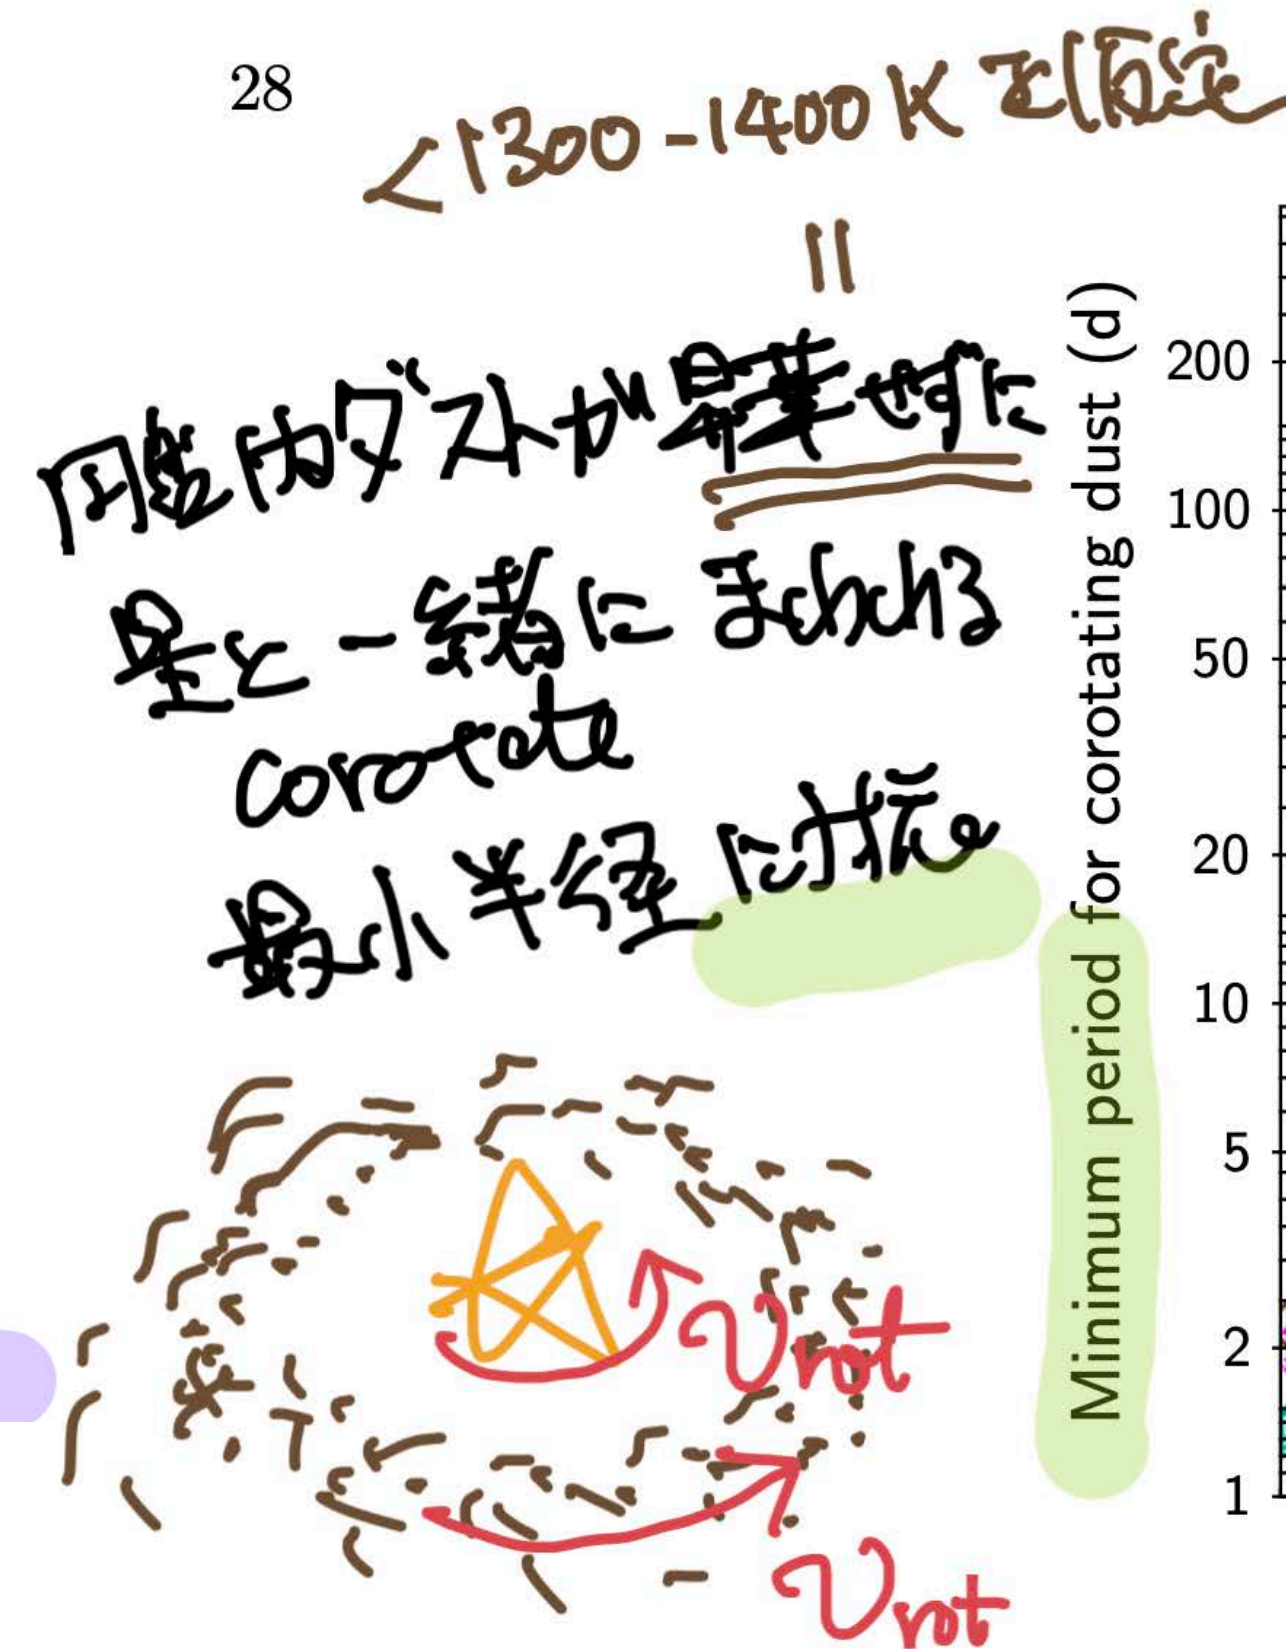 28
<1300-1400K を仮定
||
円盤内ダストが昇華せずに
星と一緒にまわれる
corotate
最小半径に対応
Minimum period for corotating dust (d)
200
100
50
20
10
5
2
1
vrot
vrot